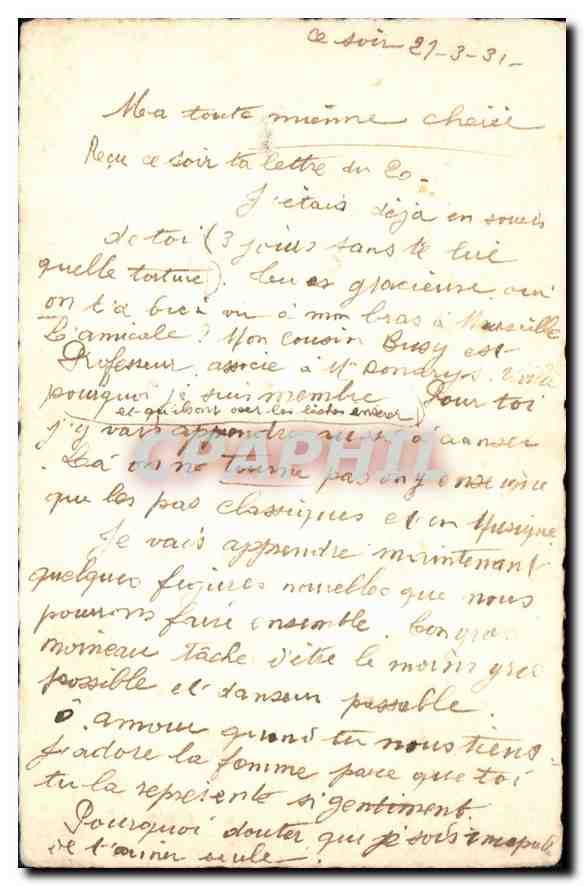 ce soir 27-3-31-
Ma toute mienne chérie
Reçu ce soir ta lettre du 20-
J'étais déjà en souci
de toi (3 jours sans te lire
quelle torture). gracieuse, oui
on t'a bien vu à mon bras à Marseille
L'amicale? Mon cousin Busy est
Professeur, associé à Mr. Voilà
pourquoi je suis membre Pour toi
et qu'ils ont les listes
j'y vais apprendre aussi à danser
. Là on ne tourne pas on y enseigne
que les pas classiques et en Musique
Je vais apprendre maintenant
quelques figures nouvelles que nous
pourrons faire ensemble. Ton gros
moineau tâche d'être le moins gros
possible et danseur passable.
ô. amour quand tu nous tiens.
J'adore la femme parce que toi
tu la représente si gentiment.
Pourquoi douter que je sois incapable
de t'aimer seule.
CPAPHIL